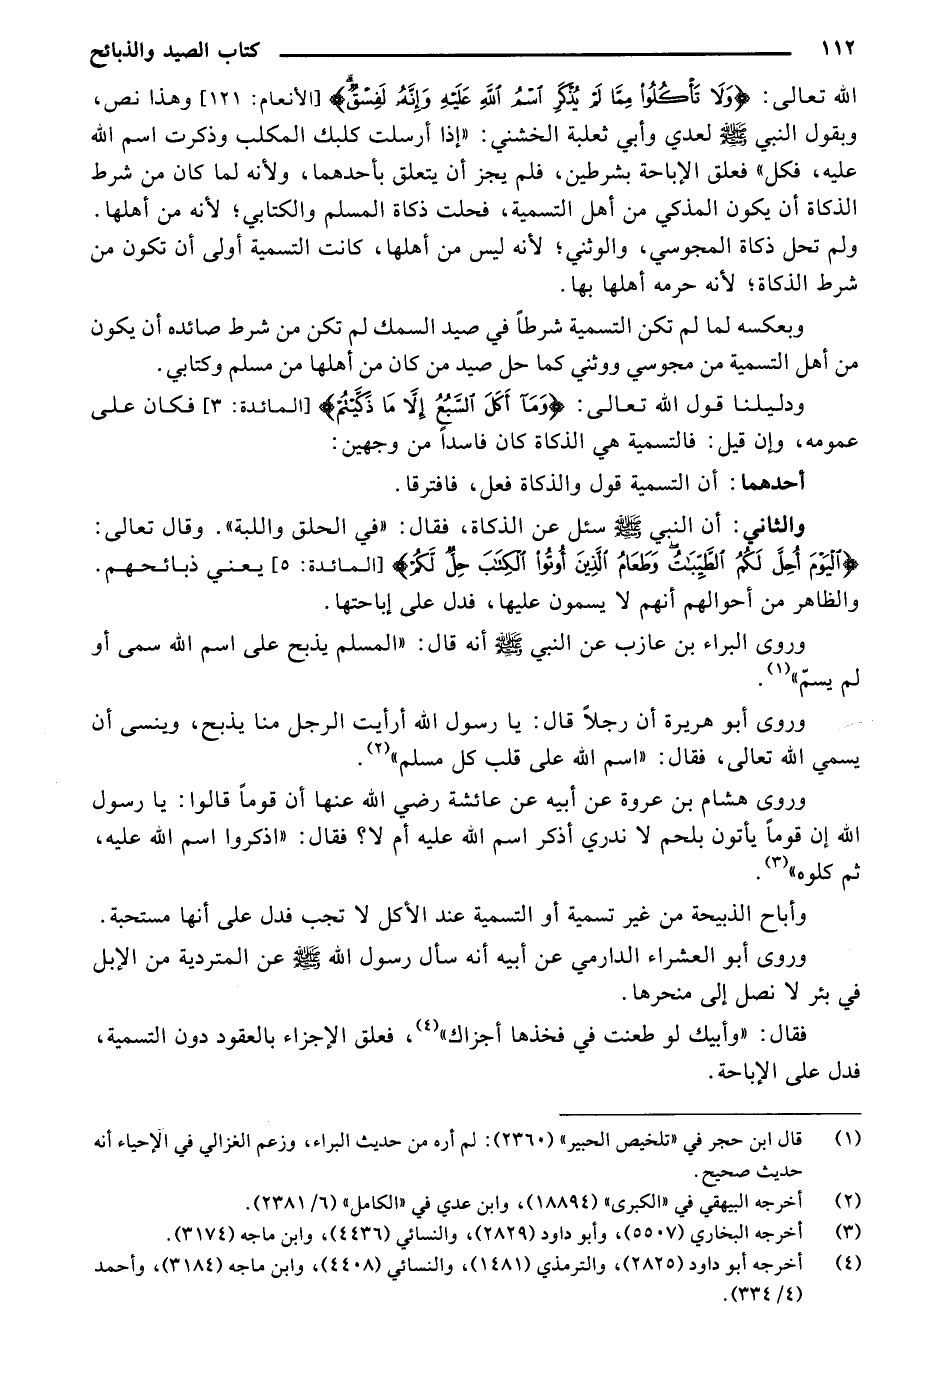 ١١٢ كتاب الصيد والذبائح
الله تعالى: ﴿وَلَا تَأْكُلُوا مِمَّا لَمْ يُذْكَرِ اسْمُ اللَّهِ عَلَيْهِ وَإِنَّهُ لَفِسْقٌ﴾ [الأنعام: ١٢١] وهذا نص،
وبقول النبي ﷺ لعدي وأبي ثعلبة الخشني: «إذا أرسلت كلبك المكلب وذكرت اسم الله
عليه، فكل» فعلق الإباحة بشرطين، فلم يجز أن يتعلق بأحدهما، ولأنه لما كان من شرط
الذكاة أن يكون المذكي من أهل التسمية، فحلت ذكاة المسلم والكتابي؛ لأنه من أهلها.
ولم تحل ذكاة المجوسي، والوثني؛ لأنه ليس من أهلها، كانت التسمية أولى أن تكون من
شرط الذكاة؛ لأنه حرمه أهلها بها.
وبعكسه لما لم تكن التسمية شرطاً في صيد السمك لم تكن من شرط صائده أن يكون
من أهل التسمية من مجوسي ووثني كما حل صيد من كان من أهلها من مسلم وكتابي.
ودليلنا قول الله تعالى: ﴿وَمَا أَكَلَ السَّبُعُ إِلَّا مَا ذَكَّيْتُمْ﴾ [المائدة: ٣] فكان على
عمومه، وإن قيل: فالتسمية هي الذكاة كان فاسداً من وجهين:
أحدهما: أن التسمية قول والذكاة فعل، فافترقا.
والثاني: أن النبي ﷺ سئل عن الذكاة، فقال: «في الحلق واللبة». وقال تعالى:
﴿الْيَوْمَ أُحِلَّ لَكُمُ الطَّيِّبَاتُ وَطَعَامُ الَّذِينَ أُوتُوا الْكِتَابَ حِلٌّ لَكُمْ﴾ [المائدة: ٥] يعني ذبائحهم.
والظاهر من أحوالهم أنهم لا يسمون عليها، فدل على إباحتها.
وروى البراء بن عازب عن النبي ﷺ أنه قال: «المسلم يذبح على اسم الله سمى أو
لم يسمّ»(١).
وروى أبو هريرة أن رجلاً قال: يا رسول الله أرأيت الرجل منا يذبح، وينسى أن
يسمي الله تعالى، فقال: «اسم الله على قلب كل مسلم»(٢).
وروى هشام بن عروة عن أبيه عن عائشة رضي الله عنها أن قوماً قالوا: يا رسول
الله إن قوماً يأتون بلحم لا ندري أذكر اسم الله عليه أم لا؟ فقال: «اذكروا اسم الله عليه،
ثم كلوه»(٣).
وأباح الذبيحة من غير تسمية أو التسمية عند الأكل لا تجب فدل على أنها مستحبة.
وروى أبو العشراء الدارمي عن أبيه أنه سأل رسول الله ﷺ عن المتردية من الإبل
في بئر لا نصل إلى منحرها.
فقال: «وأبيك لو طعنت في فخذها أجزاك»(٤)، فعلق الإجزاء بالعقود دون التسمية،
فدل على الإباحة.
(١) قال ابن حجر في «تلخيص الحبير» (٢٣٦٠): لم أره من حديث البراء، وزعم الغزالي في الإحياء أنه
حديث صحيح.
(٢) أخرجه البيهقي في «الكبرى» (١٨٨٩٤)، وابن عدي في «الكامل» (٦/ ٢٣٨١).
(٣) أخرجه البخاري (٥٥٠٧)، وأبو داود (٢٨٢٩)، والنسائي (٤٤٣٦)، وابن ماجه (٣١٧٤).
(٤) أخرجه أبو داود (٢٨٢٥)، والترمذي (١٤٨١)، والنسائي (٤٤٠٨)، وابن ماجه (٣١٨٤)، وأحمد
(٤/ ٣٣٤).